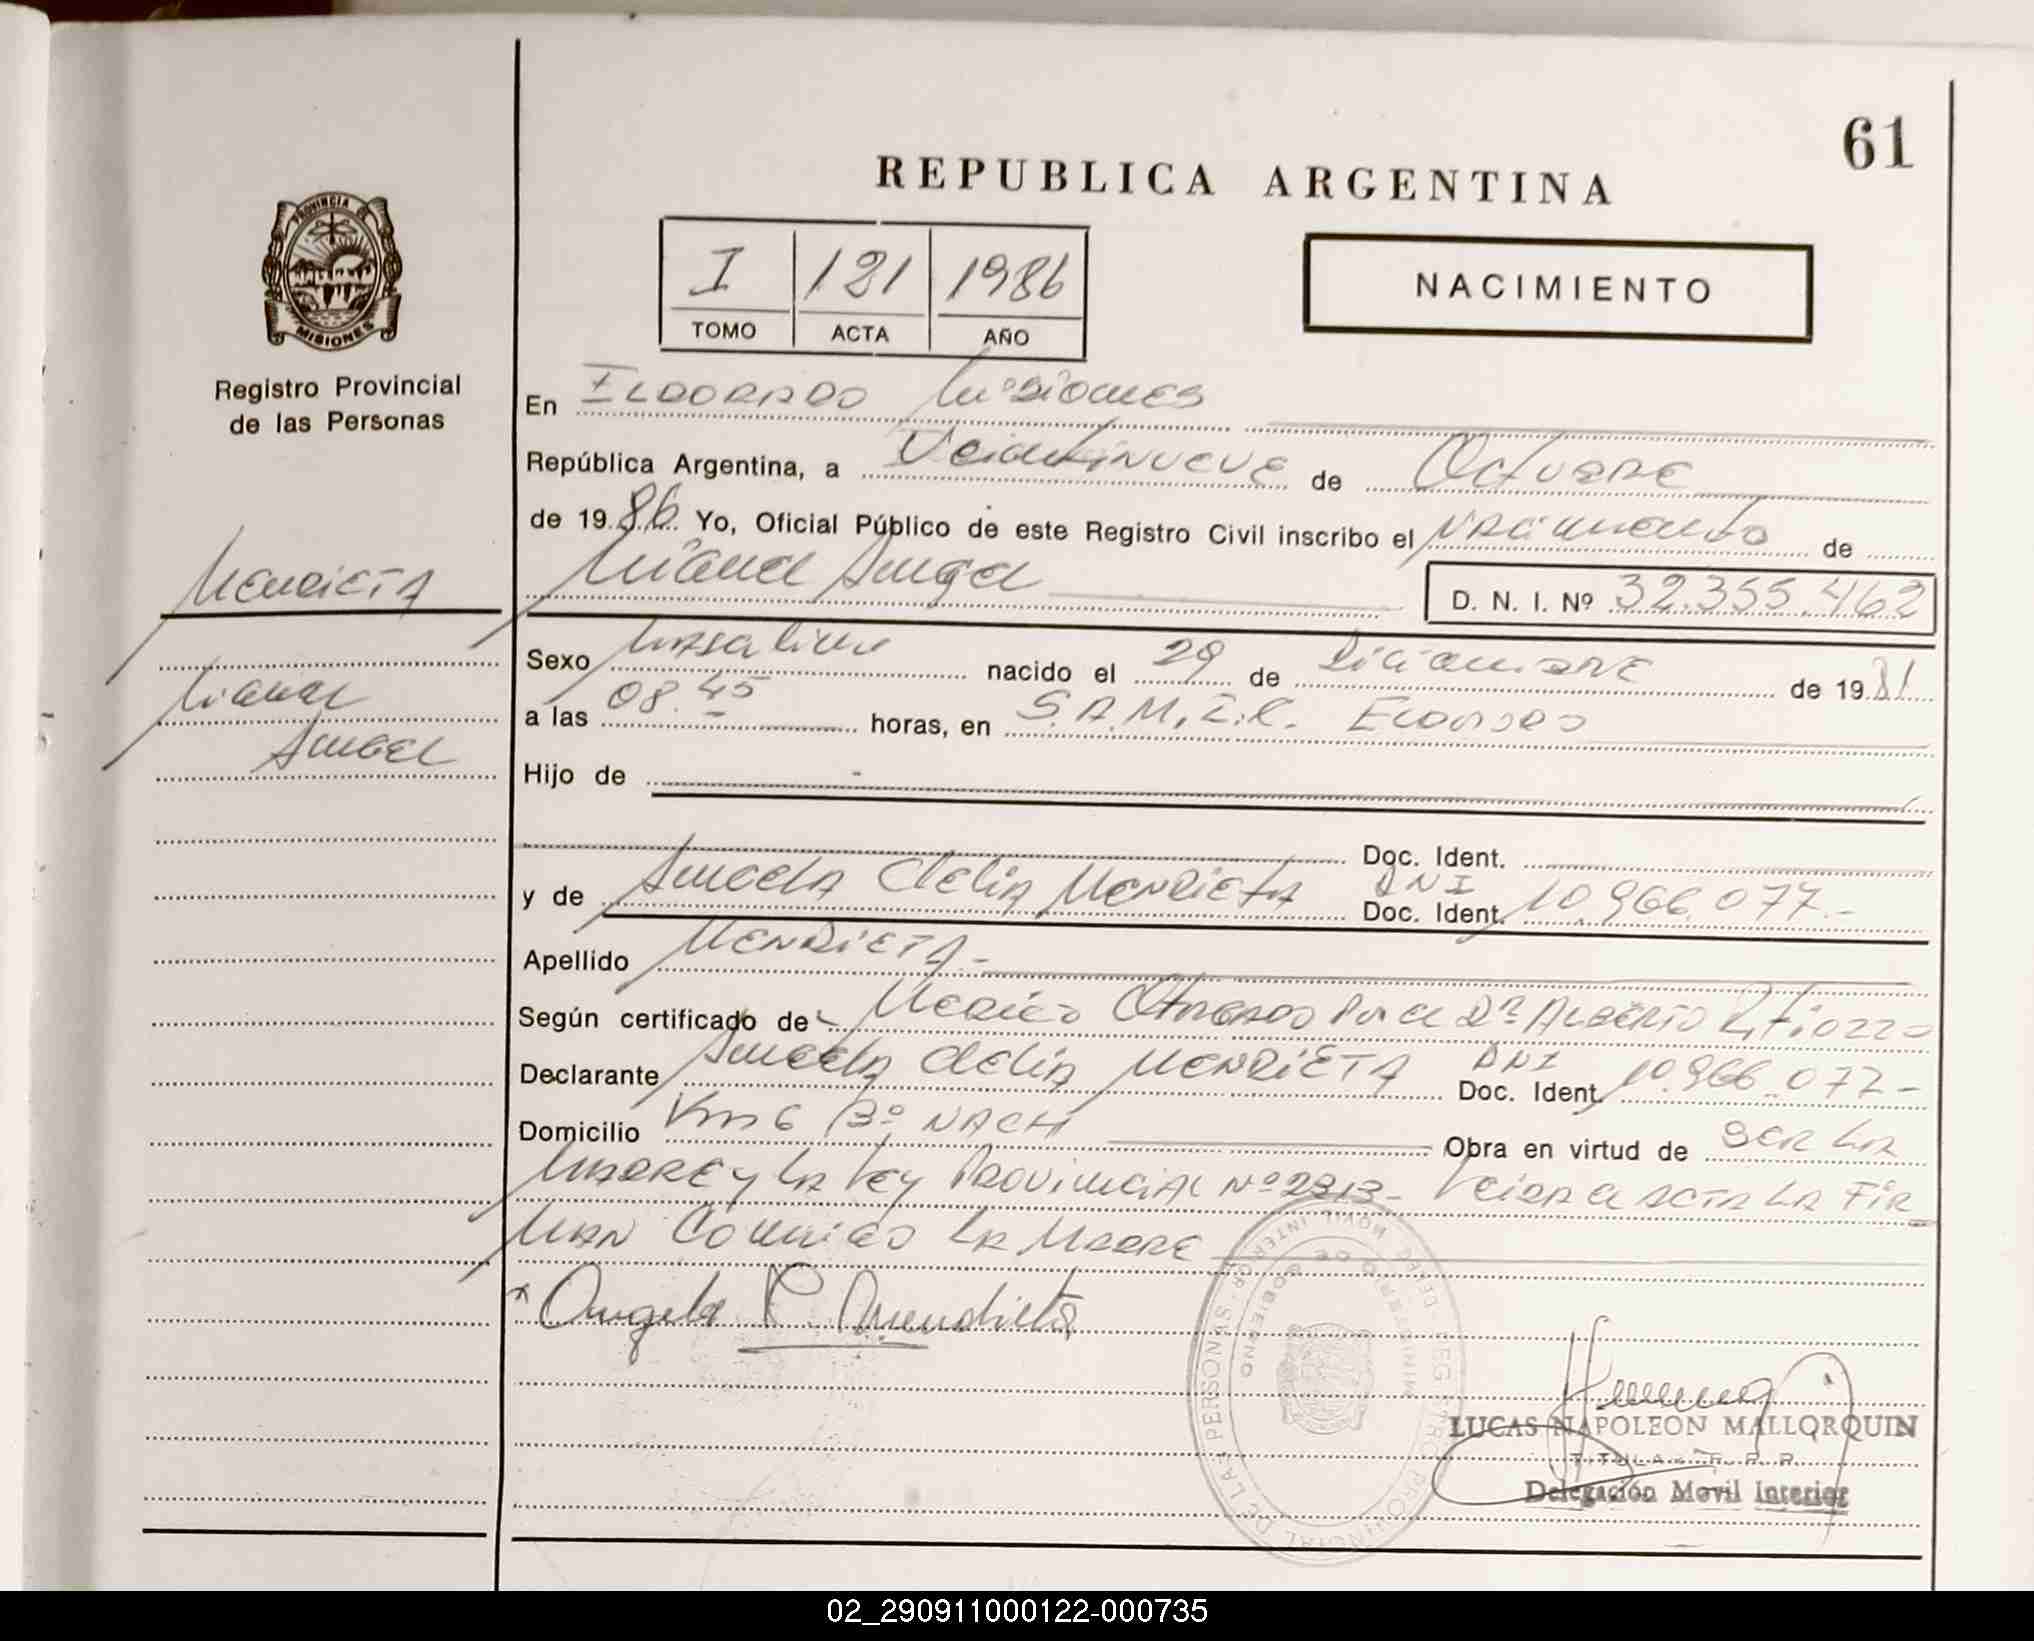 61
REPUBLICA ARGENTINA
PROVINCIA DE
MISIONES
Registro Provincial
de las Personas
I 121 1986
TOMO ACTA AÑO
NACIMIENTO
En ELDORADO Misiones
República Argentina, a Veintinueve de Octubre
de 1986 Yo, Oficial Público de este Registro Civil inscribo el Nacimiento de
Miguel Angel D. N. I. Nº 32.355.462
MENDIETA
Miguel
Angel
Sexo Masculino nacido el 29 de Diciembre de 1981
a las 08.45 horas, en S.A.M.I.C. Eldorado
Hijo de -
Doc. Ident.
y de Angela Clelia MENDIETA DNI Doc. Ident. 10.966.077.-
Apellido MENDIETA.-
Según certificado de Medico Otorgado Por el Dr. ALBERTO
Declarante Angela Clelia MENDIETA DNI Doc. Ident. 10.966.077-
Domicilio Km 6 Bº NACH Obra en virtud de SER LA
MADRE y LA Ley PROVINCIAL Nº 2313- Leida el ACTA LA FIR_
MAN Conmigo LA MADRE
Angela C. Mendieta
DELEG. MOVIL INTERIOR
REGISTRO PROVINCIAL DE LAS PERSONAS
MINISTERIO DE GOBIERNO
LUCAS NAPOLEON MALLORQUIN
TITULAR R. P. P.
Delegación Movil Interior
02_290911000122-000735